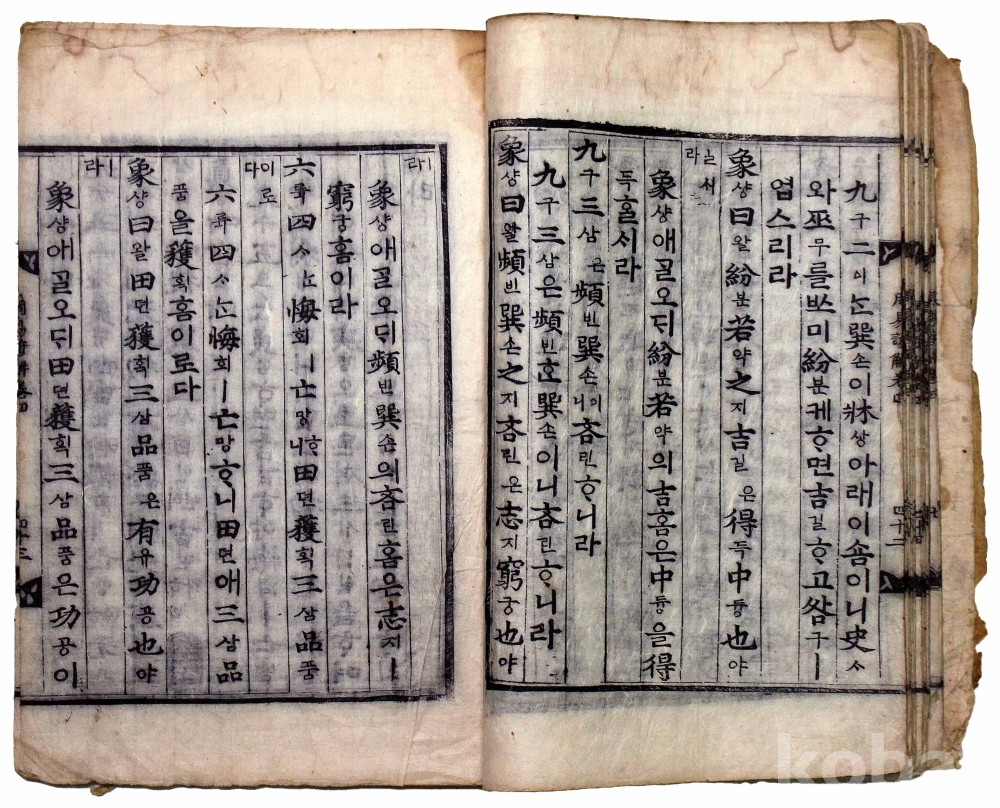 九구二이ᄂᆞᆫ巽손이牀상아래이숌이니史ᄉᆞ
와巫무를ᄡᅩ미紛분케ᄒᆞ면吉길ᄒᆞ고咎구ㅣ
업스리라
象샹曰왈紛분若약之지吉길은得득中듕也야
라
象샹애ᄀᆞᆯ오ᄃᆡ紛분若약의吉홈은中듕을得
득ᄒᆞᆯᄉᆡ라
九구三삼은頻빈巽손이니吝린ᄒᆞ니라
九구三삼은頻빈호巽손이니吝린ᄒᆞ니라
象샹曰왈頻빈巽손之지吝린은志지窮궁也야
ㅣ라
象샹애ᄀᆞᆯ오ᄃᆡ頻빈巽손의吝린홈은志지ㅣ
窮궁홈이라
六륙四ᄉᆞᄂᆞᆫ悔회ㅣ亡망ᄒᆞ니田뎐獲획三삼品품
이로다
六륙四ᄉᆞᄂᆞᆫ悔회ㅣ亡망ᄒᆞ니田뎐애三삼品
품을獲획홈이로다
象샹曰왈田뎐獲획三삼品품은有유功공也야
ㅣ라
象샹애ᄀᆞᆯ오ᄃᆡ田뎐獲획三삼品품은功공이